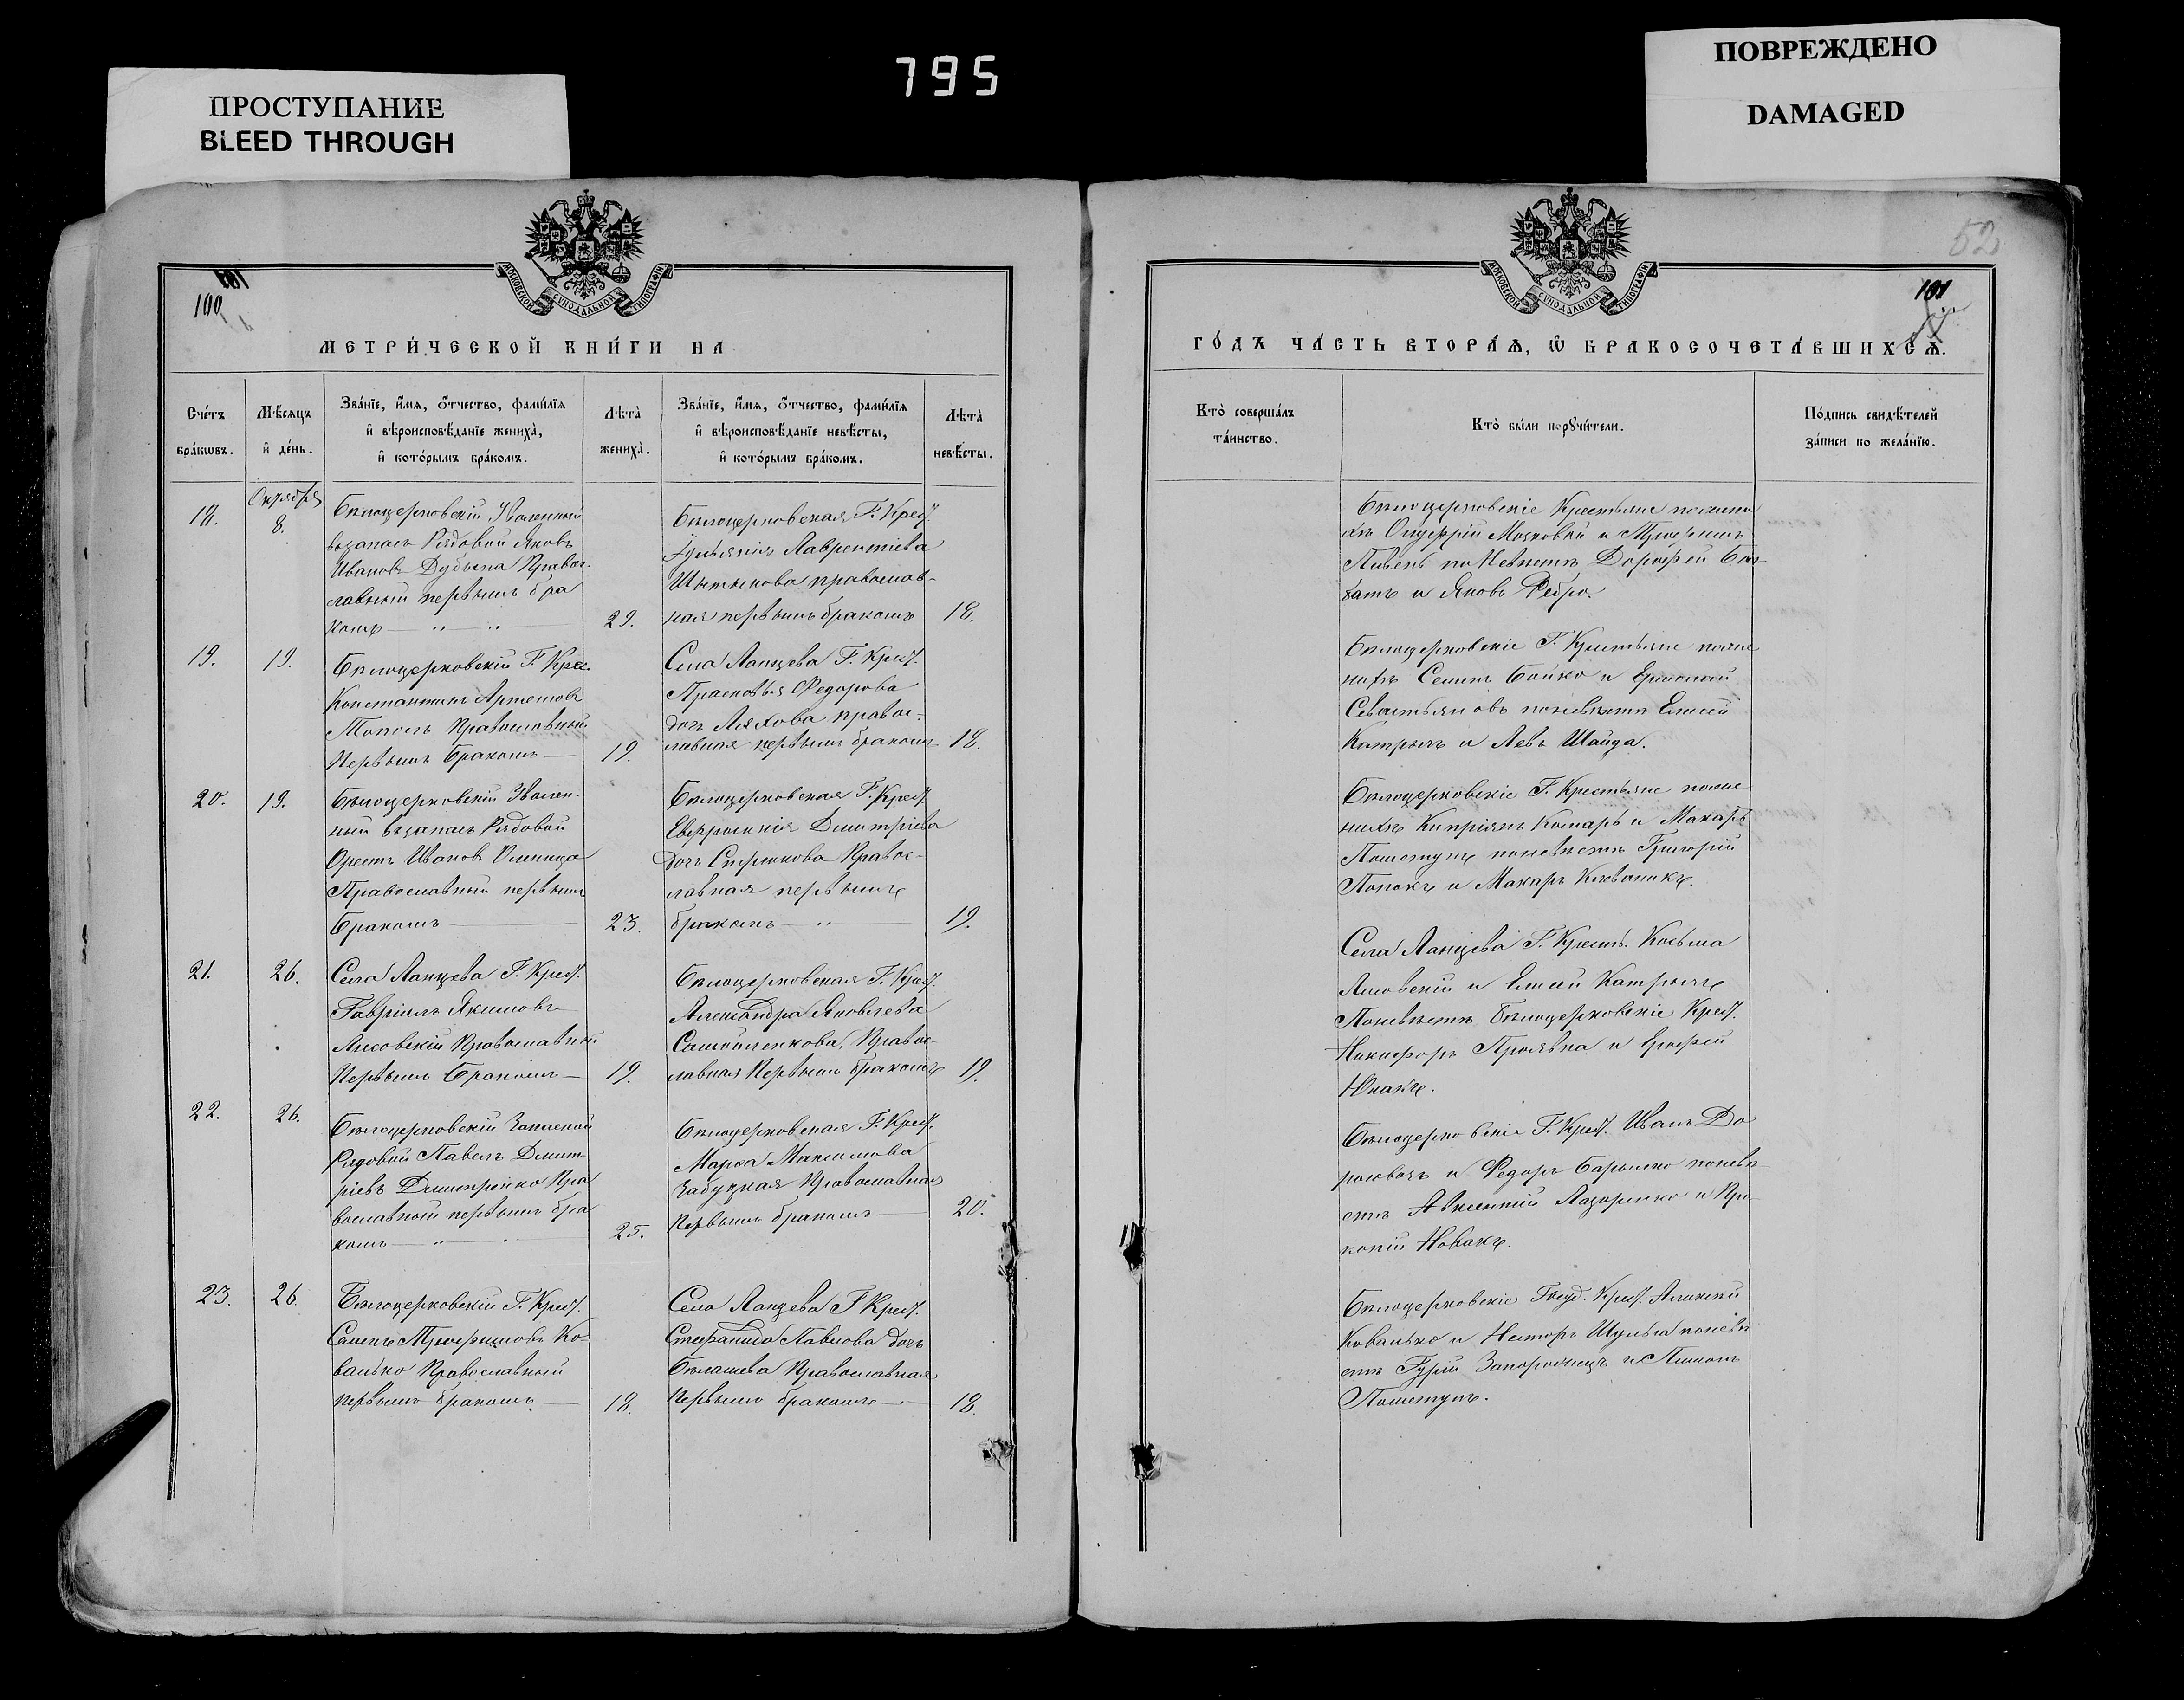 795
ПРОСТУПАНИЕ
BLEED THROUGH
ПОВРЕЖДЕНО
DAMAGED
МОСКОВСКОЙ СѴНОДАЛЬНОЙ ТИПОГРАФІИ
100
МЕТРИ́ЧЕСКОЙ КНИ́ГИ НА
Сче́тъ бра́кѡвъ.
Мѣ́сяцъ и҆ де́нь.
Зва́нїе, и҆́мя, ѻ҆́тчество, фами́лїя
и҆ вѣроисповѣ́данїе жениха̀,
и҆ кото́рымъ бра́комъ.
Лѣта̀ жениха̀.
Зва́нїе, и҆́мя, ѻ҆́тчество, фами́лїя
и҆ вѣроисповѣ́данїе невѣ́сты,
и҆ кото́рымъ бра́комъ.
Лѣта̀ невѣ́сты.
18.
Октября
8.
Бѣлоцерковскій Уволенный
възапасъ Рядовой Яковъ
Ивановъ Дубина Правос-
лавный первымъ бра
комъ
29.
Бѣлоцерковская Г. Крест.
Іуліянія Лаврентіева
православ-
ная первымъ бракомъ
18.
19.
19.
Бѣлоцерковскій Г. Крес
Константинъ Артемовъ
Тополь Православный
Первымъ Бракомъ
19.
Села Ланцева Г. Крест.
Прасковья Федорова
дочь Ляхова правос-
лавная первымъ бракомъ
18.
20.
19.
Бѣлоцерковскій Уволен-
ный възапасъ Рядовой
Орестъ Ивановъ
Православный первымъ
Бракомъ
23.
Бѣлоцерковская Г. Крест.
Евфросинія Димитріева
дочь Стрюкова Правос-
лавная первымъ
бракомъ
19.
21.
26.
Села Ланцева Г. Крест.
Гавріилъ Якимовъ
Лисовскій Православный
Первымъ Бракомъ
19.
Бѣлоцерковская Г. Крест.
Александра Яковлева
Самойленкова, Правос-
лавная Первымъ бракомъ
19.
22.
26.
Бѣлоцерковскій Запасной
Рядовой Павелъ Димит-
ріевъ Дмитренко Пра
вославный первымъ бра
комъ
25.
Бѣлоцерковская Г. Крест.
Марѳа Максимова
Забуцкая Православная
Первымъ бракомъ
20.
23.
26.
Бѣлоцерковскій Г. Крест.
Семенъ Трофимовъ Ко-
валько Православный
первымъ бракомъ
18.
Села Ланцева Г Крест.
Стефанида Павлова дочь
Бѣлашева Православная
Первымъ бракомъ
18.
52
МОСКОВСКОЙ СѴНОДАЛЬНОЙ ТИПОГРАФІИ
101
ГО́ДЪ ЧА́СТЬ ВТОРА́Я, Ѡ҆ БРАКОСОЧЕТА́ВШИХСЯ.
Кто̀ соверша́лъ
та́инство.
Кто̀ бы́ли порꙋчи́тели.
По́дпись свидѣ́телей
за́писи по жела́нїю.
Бѣлоцерковскіе Крестьяне пожени
хѣ Онуфрій Московой и Трофимъ
Ливень по Невѣстѣ Дорофей
и Яковъ Ребро.
Бѣлоцерковскіе Г. Крестьяне поже
нихѣ Семенъ Бойко и Ермолай
Севастьяновъ поневѣстѣ Елисей
Катричъ и Левъ Шайда.
Бѣлоцерковскіе Г. Крестьяне поже
нихѣ Кипріянъ Комаръ и Макаръ
Пошетунъ поневѣстѣ Григорій
Попокъ и Макаръ Клеваникъ.
Села Ланцева Г. Крестъ. Косьма
Лисовскій и Елисей Катричъ
Поневѣстѣ Бѣлоцерковскіе Крест.
Никифоръ Прологка и Ерофей
Юнакъ.
Бѣлоцерковскіе Г. Крест. Иванъ До
и Федоръ Барышко поневѣ-
стѣ Авксентій Лазоренко и Про-
копій Новакъ.
Бѣлоцерковскіе Госуд. Крест. Алексѣй
Ковалько и Несторъ Шульга поневѣ
стѣ Гурій Запорожецъ и
Пошетунъ.